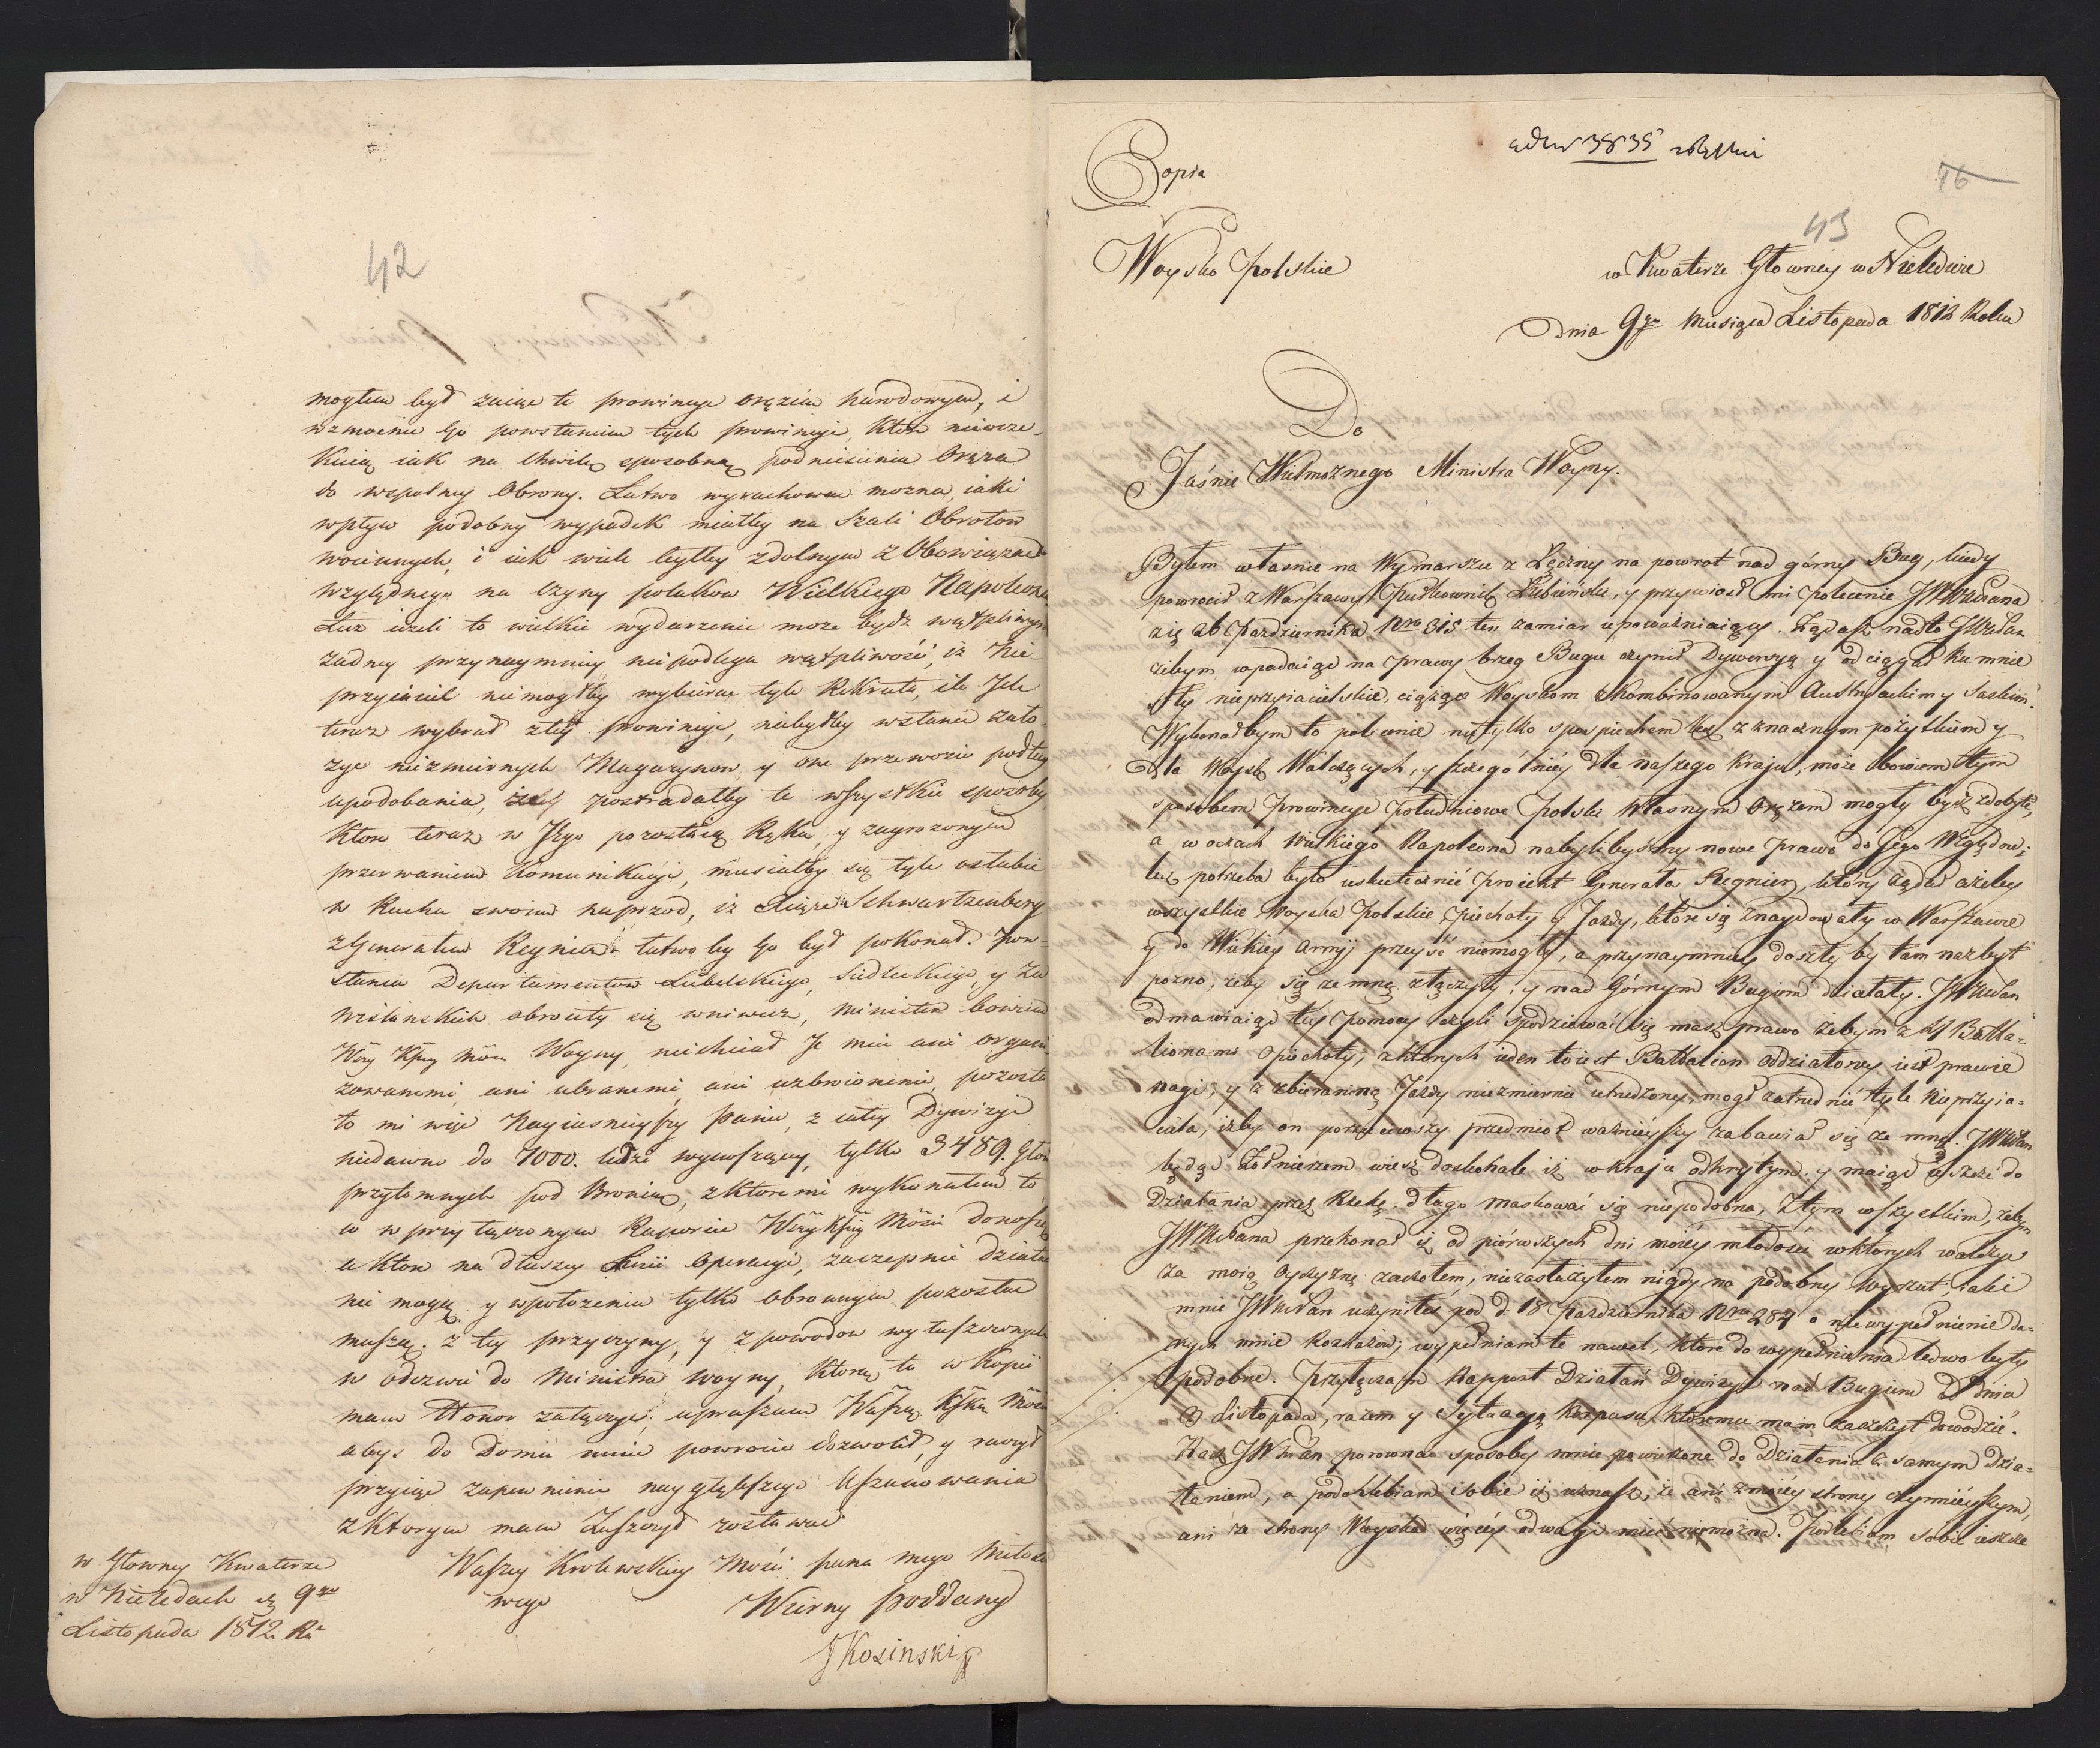 42
mogłem być zaiąć te prowincye orężem narodowym, i
wzmocnić go powstaniem tych prowincyi, które nieocze-
kuią iak na chwilę sposobną podniesienia Oręża
do wspolney Obrony. Łatwo wyrachować mozna, iaki
wpływ podobny wypadek miałby na Szali Obrotow
woiennych, i iak wiele byłby zdolnym z Obowiązać
względnego na Czyny polakow Wielkiego Napoleona
Lecz ieżeli to wielkie wydarzenie może bydz wątpliwym
żadney przynaymniey niepodlega wątpliwości, iż Nie-
przyiaciel niemogłby wybierać tyle Rekruta, ile Jch
teraz wybrał z tey prowincyi, niebyłby wstanie zało-
zyć niezmiernych Magazynow, y one przewozić podług
upodobania, postradałby te wszystkie sposoby
Ktore teraz w Jego pozostaią Ręku, y zagrożonym
przerwaniem Komunikacyi, musiałby się tyle osłabić
w Ruchu swoim naprzod, iż Xiąże Schwartzenberg
z Generałem Regnier łatwo by go był pokonał. Pow-
stania Departamentow Lubelskiego, Siedleckiego, y
obrociły się wniwecz, Minister bowiem
Wszy Kżcy Mści Woyny, niechciał Je mieć ani organi-
zowanemi, ani ubranemi, ani uzbroionemi, pozosta
to mi więc Nayiasnieyszy Panie, z całey Dywizyi
niedawno do 7000. ludzi wynoszącey, tylko 3489. Głow
przytomnych pod Bronią, z ktoremi wykonałem to
co w przyłączonym Raporcie Wszey Kżcy Mości donoszę
a ktore na dłuszey Linii Operacyi, zaczepnie działać
nie mogą y w położeniu tylko Obronnym pozostać
muszą. Z tey przyczyny, y z powodow wyłuszczonych
w odezwie do Ministra woyny, ktorą tu w Kopii
mam Honor załączyć; upraszam Waszey Kżcey Mości
abyś do Domu mnie powrocić dozwolił, y raczył
przyiąć zapewnienie nayglębszego Uszanowania
z Ktorym mam Zaszczyt zostawać
Waszey Krolewskiey Mości pana mego Miłości-
wego
Wierny poddany
JKosinski
w Głowney Kwaterze
w Nieledach d. 9go
Listopada 1812. Ru
3835
Copia
76
43
Woysko Polskie
w Kwaterze Głowney w Nieledwie
Dnia 9go Miesiąca Listopada 1812 Roku
Do
Jaśnie Wielmożnego Ministra Woyny.
Byłem własnie na Wymarszu z Łęczny na powrot nad górny Bug, kiedy
powrocił z Warszawy Pułkownik Łubieński, y przywiozł mi polecenie JWWPana
się 26 Pazdziernika Nro 315 ten zamiar upoważniaiący. Żądasz nadto JWWPan
żebym wpadaiąc na prawy brzeg Bugu czynił Dywersyą y odciągał ku mnie
siły nieprzyiacielskie, ciążące Woyskom Skombinowanym Austryackim y Saskim.
Wykonałbym to polecenie nietylko spospiechem lecz z znacznym pożytkiem y
dla Woysk Walczących, y szczegolniey dla naszego Kraju, może bowiem tym
sposobem Prowincye Południowe Polski Własnym Orężem mogły bydz zdobyte,
a w oczach Wielkiego Napoleona nabylibyśmy nowe Prawo do Jego Względow;
lecz potrzeba było uskutecznić Proiekt Generała Regnier, który żądał ażeby
wszystkie Woyska Polskie Piechoty y Jazdy, które się znaydowały w Warszawie
y do Wielkiey Armij przeyść niemogły, a przynaymniey doszły by tam nazbyt
pozno, żeby się zemną złączyły, y nad Górnym Bugiem działały. JWWPan
odmawiaiąc tey Pomocy czyli spodziewać się masz prawo żebym z 4 Batta-
lionami Piechoty, z ktorych ieden to iest Battalion oddziałowy iest prawie
nagi; y z zbieraniną Jazdy niezmiernie utrudzoney, mogł zatrudnić tyle Nieprzyia-
ciela, iżby on porzuciwszy przedmiot ważnieyszy zabawiał się ze mną. JWWPan
będąc Żołnierzem wiesz doskonale iż wkraju odkrytym y maiąc do
Działania przez Rzekę długo maskować się niepodobna, Ztym wszystkim, żebym
JWWPana przekonał iż od pierwszych dni moiey młodości wktorych walczyć
za moią Oyczyznę zacząłem, niezasłużyłem nigdy na podobny Wyrzut, iaki
mnie JWWPan uczyniłeś pod d. 18 Pazdziernika Nro 287 o niewypełnienie da-
nych mnie Rozkazow; wypełniam te nawet, które do wypełnienia ledwo były
podobne. Przyłączam Rapport Działań Dywizyi nad Bugiem D dnia
Listopada, razem y Sytuacyą Korpusu, któremu mam zaszczyt dowodzić.
Racz JWWPan porownać sposoby mnie powierzone do Działania z samym Dzia-
łaniem, a podchlebiam Sobie iż uznasz, że ani z moiey strony czynnieyszym,
ani ze strony Woyska więcey odwagi mieć niemożna. Podchlebiam Sobie ieszcze